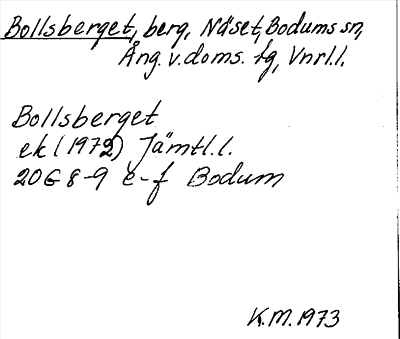 Bollsberget, berg, Näset, Bodums sn,
Ång. v. doms. tg, Vnrl.l.
Bollsberget
ek (1972) Jämtl.l.
20G 8-9 e-f Bodum
K.M. 1973